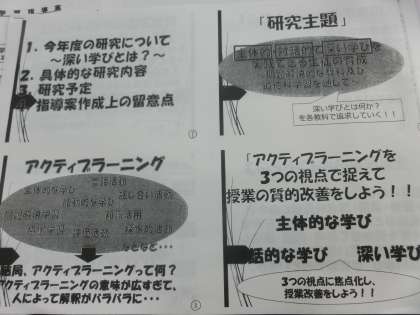 学習指導案
1. 今年度の研究について
～深い学びとは？～
2. 具体的な研究内容
3. 研究予定
指導案作成上の留意点
①
「研究主題」
主体的・対話的で深い学びを
実践できる生徒の育成
深い学びとは何か？
を各教科で追求していく！！
②
アクティブラーニング
言語活動
主体的な学び
話し合い活動
などなど…
結局、アクティブラーニングって何？
アクティブラーニングの意味が広すぎて、
人によって解釈がバラバラに・・・
③
「アクティブラーニングを
3つの視点で捉えて
授業の質的改善をしよう！！
主体的な学び
話的な学び　深い学び
3つの視点に焦点化し、
授業改善をしよう！！